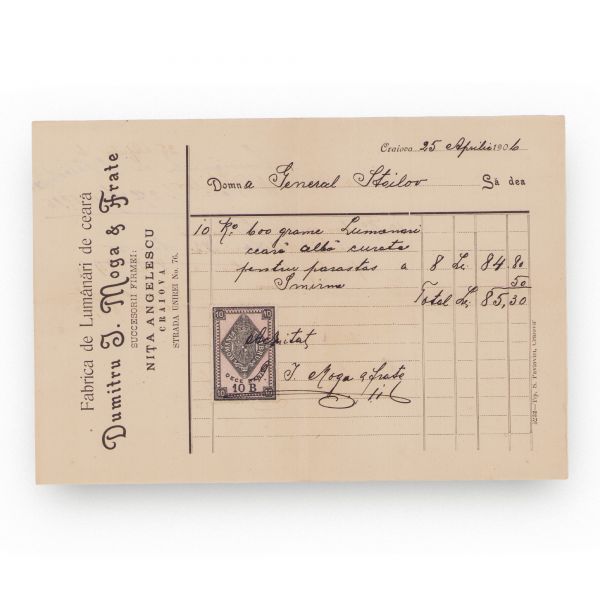 Fabrica de Lumânări de ceară
Dumitru I. Moga & Frate
SUCCESORII FIRMEI:
NIȚA ANGELESCU
CRAIOVA
STRADA UNIREI No. 76.
Craiova 25 Aprilie 1906
Domna General Stoilov Să dea
10 Ko 600 grame Lumanari
ceară albă curata
pentru parastas a 8 Lei 84.80
Smirna 50
Total Lei 85,30
Achitat
10 10
ZECE BANI
10 B
I. Moga & frate